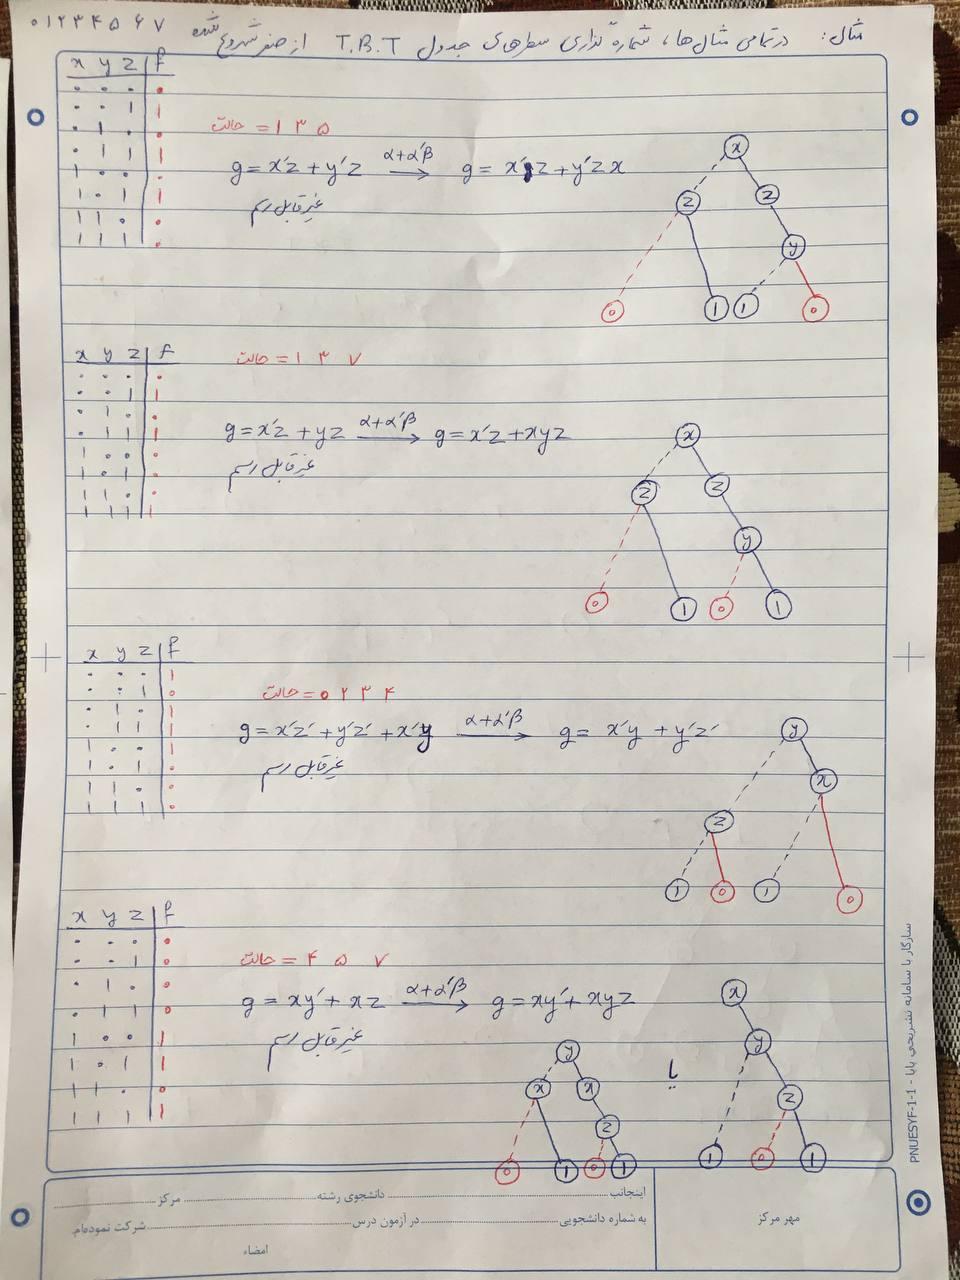 مثال: در تمامی مثال‌ها، شماره گذاری سطرهای جدول T.B.T از صفر شروع شده ۰ ۱ ۲ ۳ ۴ ۵ ۶ ۷
x y z | f
۰ ۰ ۰ | ۰
۰ ۰ ۱ | ۱
۰ ۱ ۰ | ۰
۰ ۱ ۱ | ۱
۱ ۰ ۰ | ۰
۱ ۰ ۱ | ۱
۱ ۱ ۰ | ۰
۱ ۱ ۱ | ۰
حالت = ۱ ۳ ۵
g = x'z + y'z α+α'β → g = x'z + y'zx
غیرقابل رسم
x
z z
y
۰ ۱ ۱ ۰
x y z | f
۰ ۰ ۰ | ۰
۰ ۰ ۱ | ۱
۰ ۱ ۰ | ۰
۰ ۱ ۱ | ۱
۱ ۰ ۰ | ۰
۱ ۰ ۱ | ۰
۱ ۱ ۰ | ۰
۱ ۱ ۱ | ۱
حالت = ۱ ۳ ۷
g = x'z + yz α+α'β → g = x'z + xyz
غیرقابل رسم
x
z z
y
۰ ۱ ۰ ۱
x y z | f
۰ ۰ ۰ | ۱
۰ ۰ ۱ | ۰
۰ ۱ ۰ | ۱
۰ ۱ ۱ | ۱
۱ ۰ ۰ | ۱
۱ ۰ ۱ | ۰
۱ ۱ ۰ | ۰
۱ ۱ ۱ | ۰
حالت = ۰ ۲ ۳ ۴
g = x'z' + y'z' + x'y α+α'β → g = x'y + y'z'
غیرقابل رسم
y
x
z
۱ ۰ ۱ ۰
x y z | f
۰ ۰ ۰ | ۰
۰ ۰ ۱ | ۰
۰ ۱ ۰ | ۰
۰ ۱ ۱ | ۰
۱ ۰ ۰ | ۱
۱ ۰ ۱ | ۱
۱ ۱ ۰ | ۰
۱ ۱ ۱ | ۱
حالت = ۴ ۵ ۷
g = xy' + xz α+α'β → g = xy' + xyz
غیرقابل رسم
y
x x
z
۰ ۱ ۰ ۱
یا
x
y
z
۱ ۰ ۱
سازگار با سامانه تشریحی پایا - PNUESYF-1-1
اینجانب دانشجوی رشته مرکز
به شماره دانشجویی در آزمون درس شرکت نموده‌ام.
امضاء
مهر مرکز